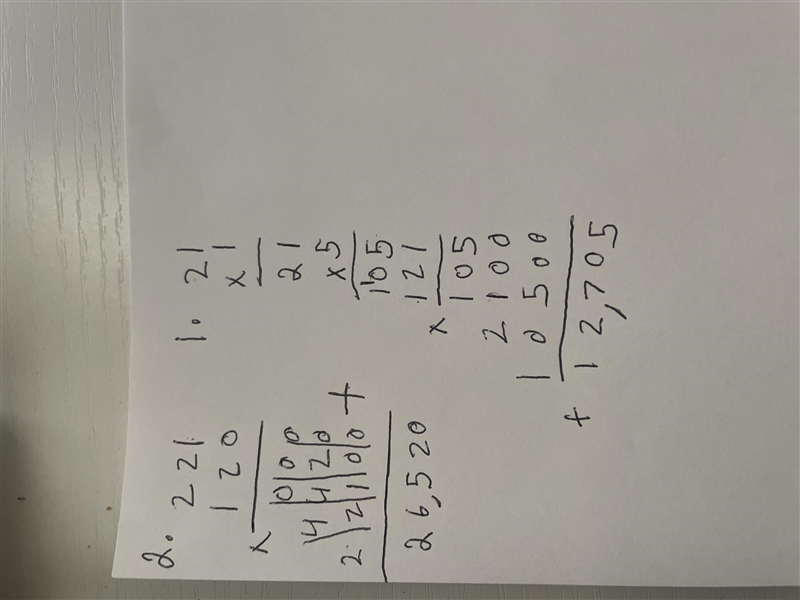 2. 221
x 120
000
4420
22100 +
26,520
1. 21
x1
21
x5
105
x 121
105
2100
10500
+ 12,705